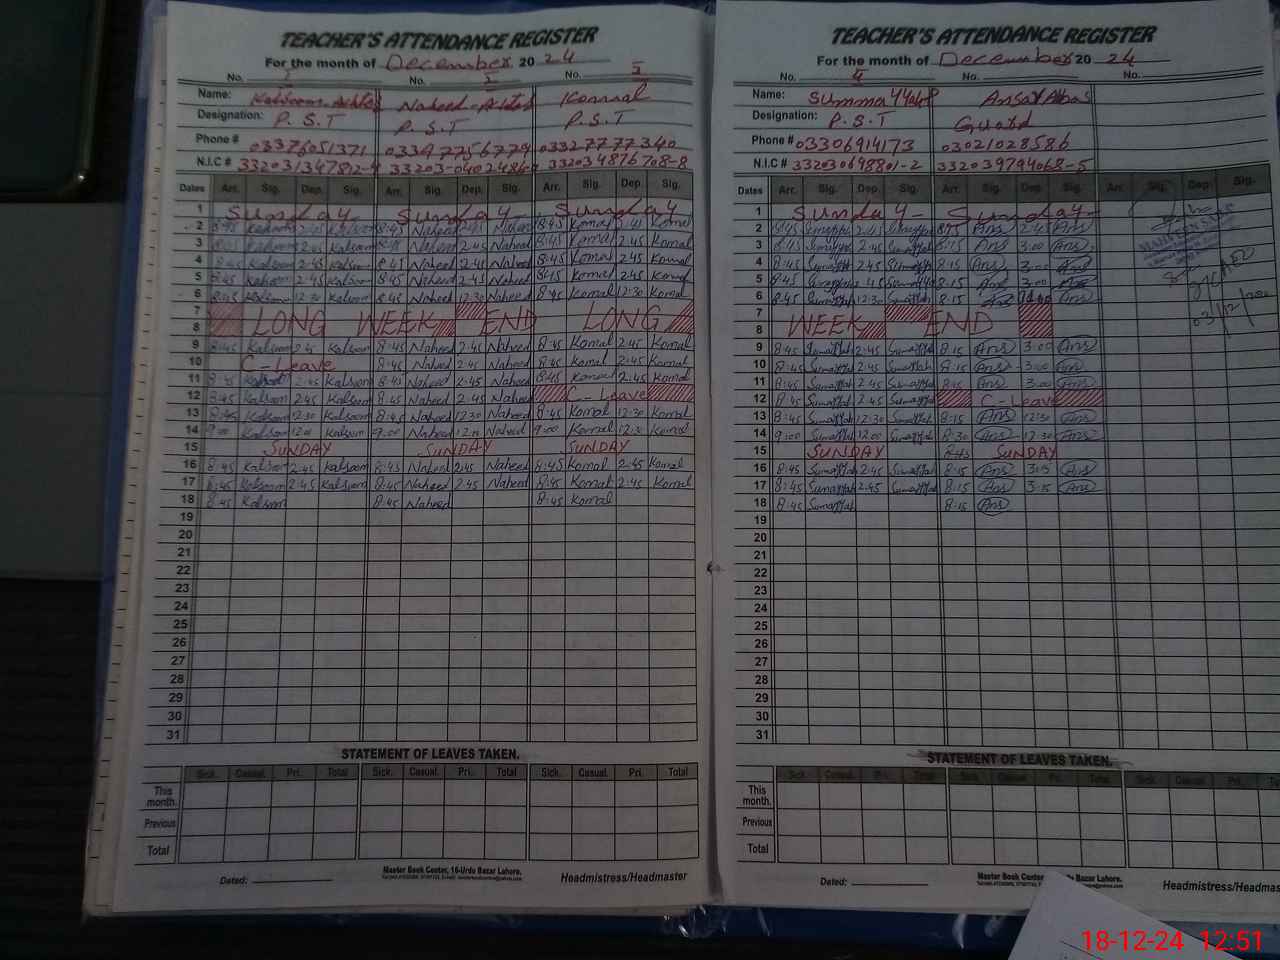 TEACHER'S ATTENDANCE REGISTER
For the month of December 20 24
No. No. No.
Name: Kalsoom Naheed Komal
Designation: P.S.T P.S.T P.S.T
Phone # 03376051371 03347756779 03327777340
N.I.C #
Dates Arr. Sig. Dep. Sig. Arr. Sig. Dep. Sig. Arr. Sig. Dep. Sig.
1 Sunday Sunday Sunday
2 8:45 Kalsoom 2:45 Kalsoom 8:45 Naheed 2:45 Naheed 8:45 Komal 2:45 Komal
3 Kalsoom 2:45 Kalsoom 8:45 Naheed 2:45 Naheed 8:45 Komal 2:45 Komal
4 8:45 Kalsoom 2:45 Kalsoom 8:45 Naheed 2:45 Naheed 8:45 Komal 2:45 Komal
5 8:45 Kalsoom 2:45 Kalsoom 8:45 Naheed 2:45 Naheed 8:45 Komal 2:45 Komal
6 8:45 Kalsoom 12:30 Kalsoom 8:45 Naheed 12:30 Naheed 8:45 Komal 12:30 Komal
7
8 LONG WEEK END LONG
9 8:45 Kalsoom 2:45 Kalsoom 8:45 Naheed 2:45 Naheed 8:45 Komal 2:45 Komal
10 C-Leave 8:45 Naheed 2:45 Naheed 8:45 Komal 2:45 Komal
11 8:45 Kalsoom 2:45 Kalsoom 8:45 Naheed 2:45 Naheed 8:45 Komal 2:45 Komal
12 8:45 Kalsoom 2:45 Kalsoom 8:45 Naheed 2:45 Naheed C-Leave
13 8:45 Kalsoom 12:30 Kalsoom 8:45 Naheed 12:30 Naheed 8:45 Komal 12:30 Komal
14 9:00 Kalsoom 12:00 Kalsoom 9:00 Naheed 12:00 Naheed 9:00 Komal 12:00 Komal
15 SUNDAY SUNDAY SUNDAY
16 8:45 Kalsoom 2:45 Kalsoom 8:45 Naheed 2:45 Naheed 8:45 Komal 2:45 Komal
17 8:45 Kalsoom 2:45 Kalsoom 8:45 Naheed 2:45 Naheed 8:45 Komal 2:45 Komal
18 8:45 Kalsoom 8:45 Naheed 8:45 Komal
19
20
21
22
23
24
25
26
27
28
29
30
31
STATEMENT OF LEAVES TAKEN.
Sick. Casual. Pri. Total Sick. Casual. Pri. Total Sick. Casual. Pri. Total
This month.
Previous
Total
Master Book Center, 16-Urdu Bazar Lahore.
Dated: Headmistress/Headmaster
TEACHER'S ATTENDANCE REGISTER
For the month of December 20 24
No. 4 No. No.
Name: Ansar Abas
Designation: P.S.T Guard
Phone # 03306914173 03021028586
N.I.C # 332030698801-2 3320397940 68-5
Dates Arr. Sig. Dep. Sig. Arr. Sig. Dep. Sig. Arr. Sig. Dep. Sig.
1 Sunday Sunday
2 8:45 Sumayyah 2:45 Sumayyah Ans 2:45 Ans
3 8:45 Sumayyah 2:45 Sumayyah 8:15 Ans 3:00 Ans
4 8:45 Sumayyah 2:45 Sumayyah 8:15 Ans 3:00 Ans
5 8:45 Sumayyah 2:45 Sumayyah 8:15 Ans 3:00 Ans
6 8:45 Sumayyah 12:30 Sumayyah 8:15 Ans Ans
7
8 WEEK END
9 8:45 Sumayyah 2:45 Sumayyah 8:15 Ans 3:00 Ans
10 8:45 Sumayyah 2:45 Sumayyah 8:15 Ans 3:00 Ans
11 8:45 Sumayyah 2:45 Sumayyah Ans 3:00 Ans
12 8:45 Sumayyah 2:45 Sumayyah C-Leave
13 8:45 Sumayyah 12:30 Sumayyah 8:15 Ans 12:30 Ans
14 9:00 Sumayyah 12:00 Sumayyah 8:30 Ans 12:30 Ans
15 SUNDAY SUNDAY
16 8:45 Sumayyah 2:45 Sumayyah 8:15 Ans 3:15 Ans
17 8:45 Sumayyah 2:45 Sumayyah 8:15 Ans 3:15 Ans
18 8:45 Sumayyah 8:15 Ans
19
20
21
22
23
24
25
26
27
28
29
30
31
STATEMENT OF LEAVES TAKEN.
Sick. Casual. Pri. Total Sick. Casual. Pri. Total Sick. Casual. Pri.
This month.
Previous
Total
Master Book Center, Bazar Lahore.
Dated: Headmistress/Headmas
18-12-24 12:51